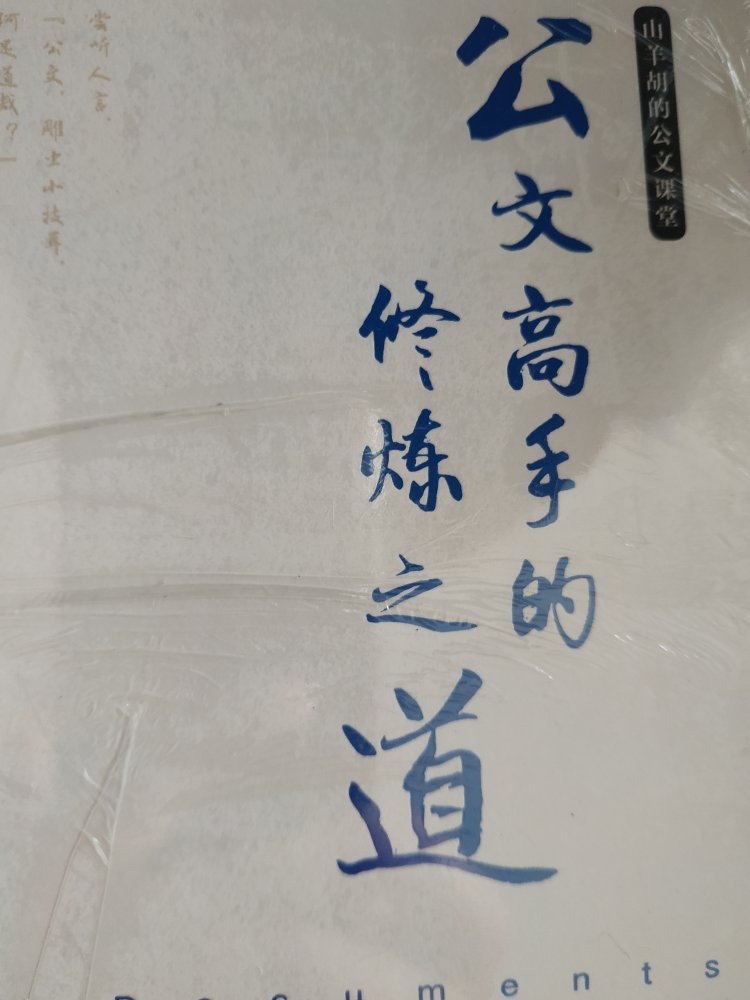 山羊胡的公文课堂
公文高手的
修炼之道
尝听人言，
「公文，雕虫小技耳，
何足道哉？」
Documents